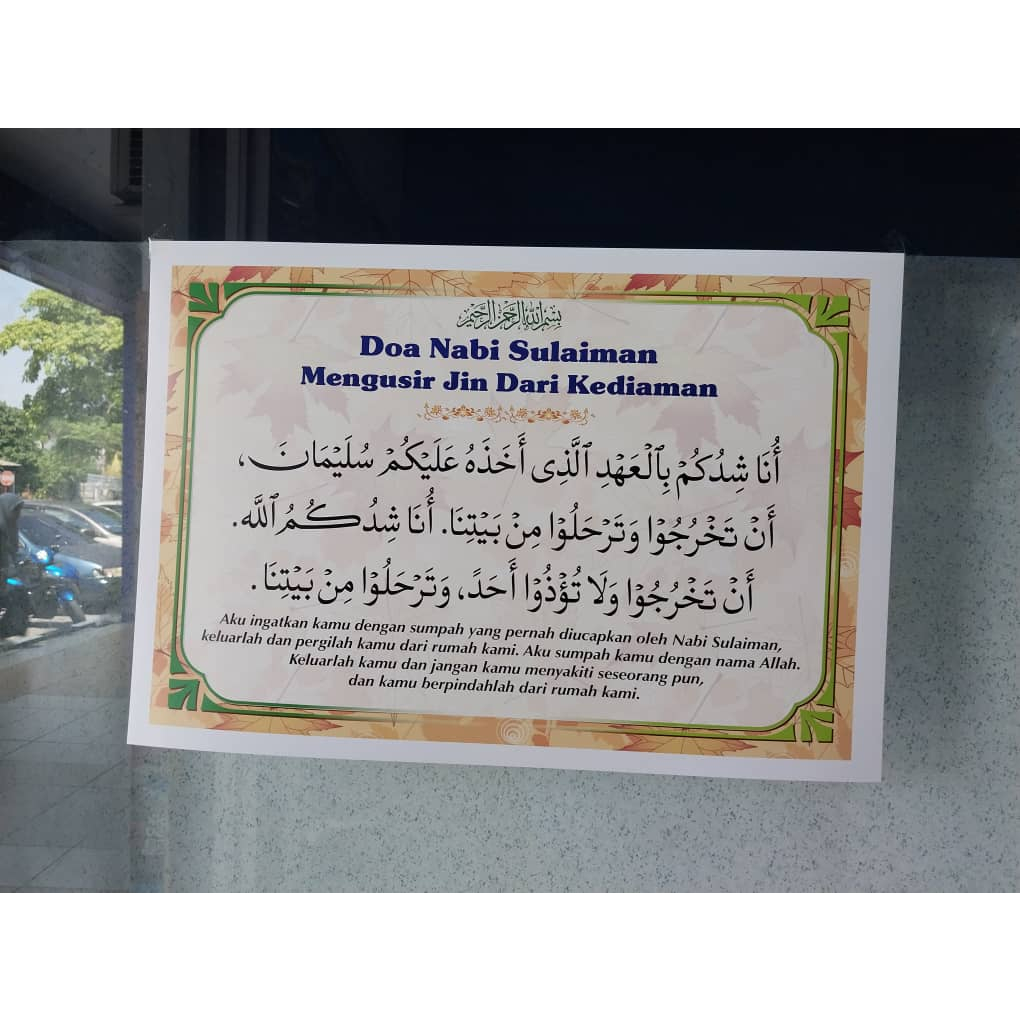 بِسْمِ اللهِ الرَّحْمٰنِ الرَّحِيْمِ
Doa Nabi Sulaiman
Mengusir Jin Dari Kediaman
أُنَا شِدُكُمْ بِٱلْعَهْدِ ٱلَّذِى أَخَذَهُ عَلَيْكُمْ سُلَيْمَانَ،
أَنْ تَخْرُجُوْا وَتَرْحَلُوْا مِنْ بَيْتِنَا. أُنَا شِدُكُمُ ٱللَّه.
أَنْ تَخْرُجُوْا وَلَا تُؤْذُوْا أَحَدً، وَتَرْحَلُوْا مِنْ بَيْتِنَا.
Aku ingatkan kamu dengan sumpah yang pernah diucapkan oleh Nabi Sulaiman,
keluarlah dan pergilah kamu dari rumah kami. Aku sumpah kamu dengan nama Allah.
Keluarlah kamu dan jangan kamu menyakiti seseorang pun,
dan kamu berpindahlah dari rumah kami.